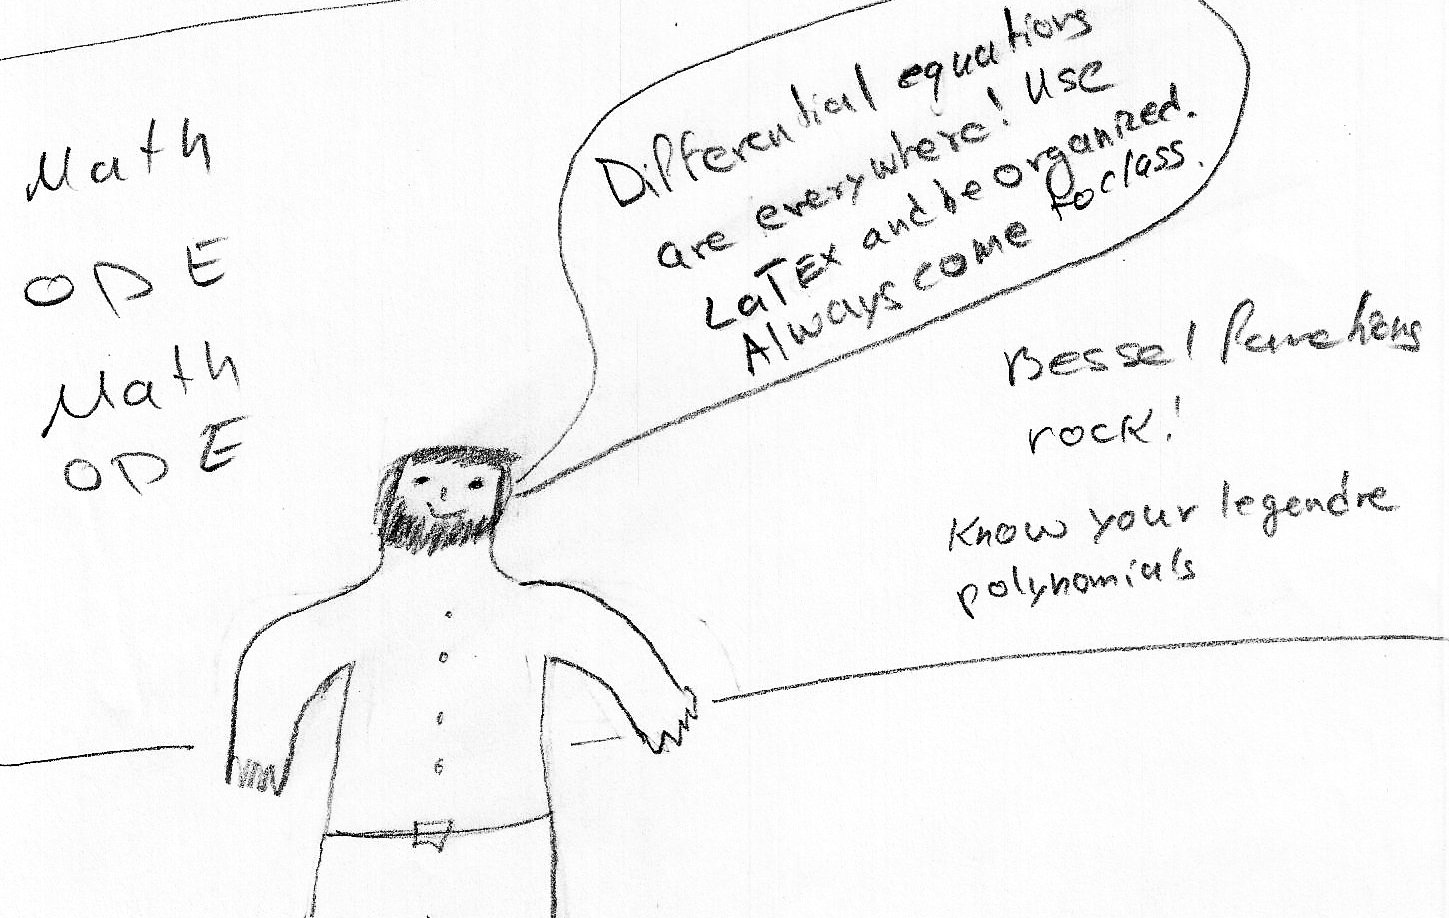 Math
ODE
Math
ODE
Differential equations
are everywhere! Use
LaTEx and be organized.
Always come to class.
Bessel functions
rock!
Know your legendre
polynomials